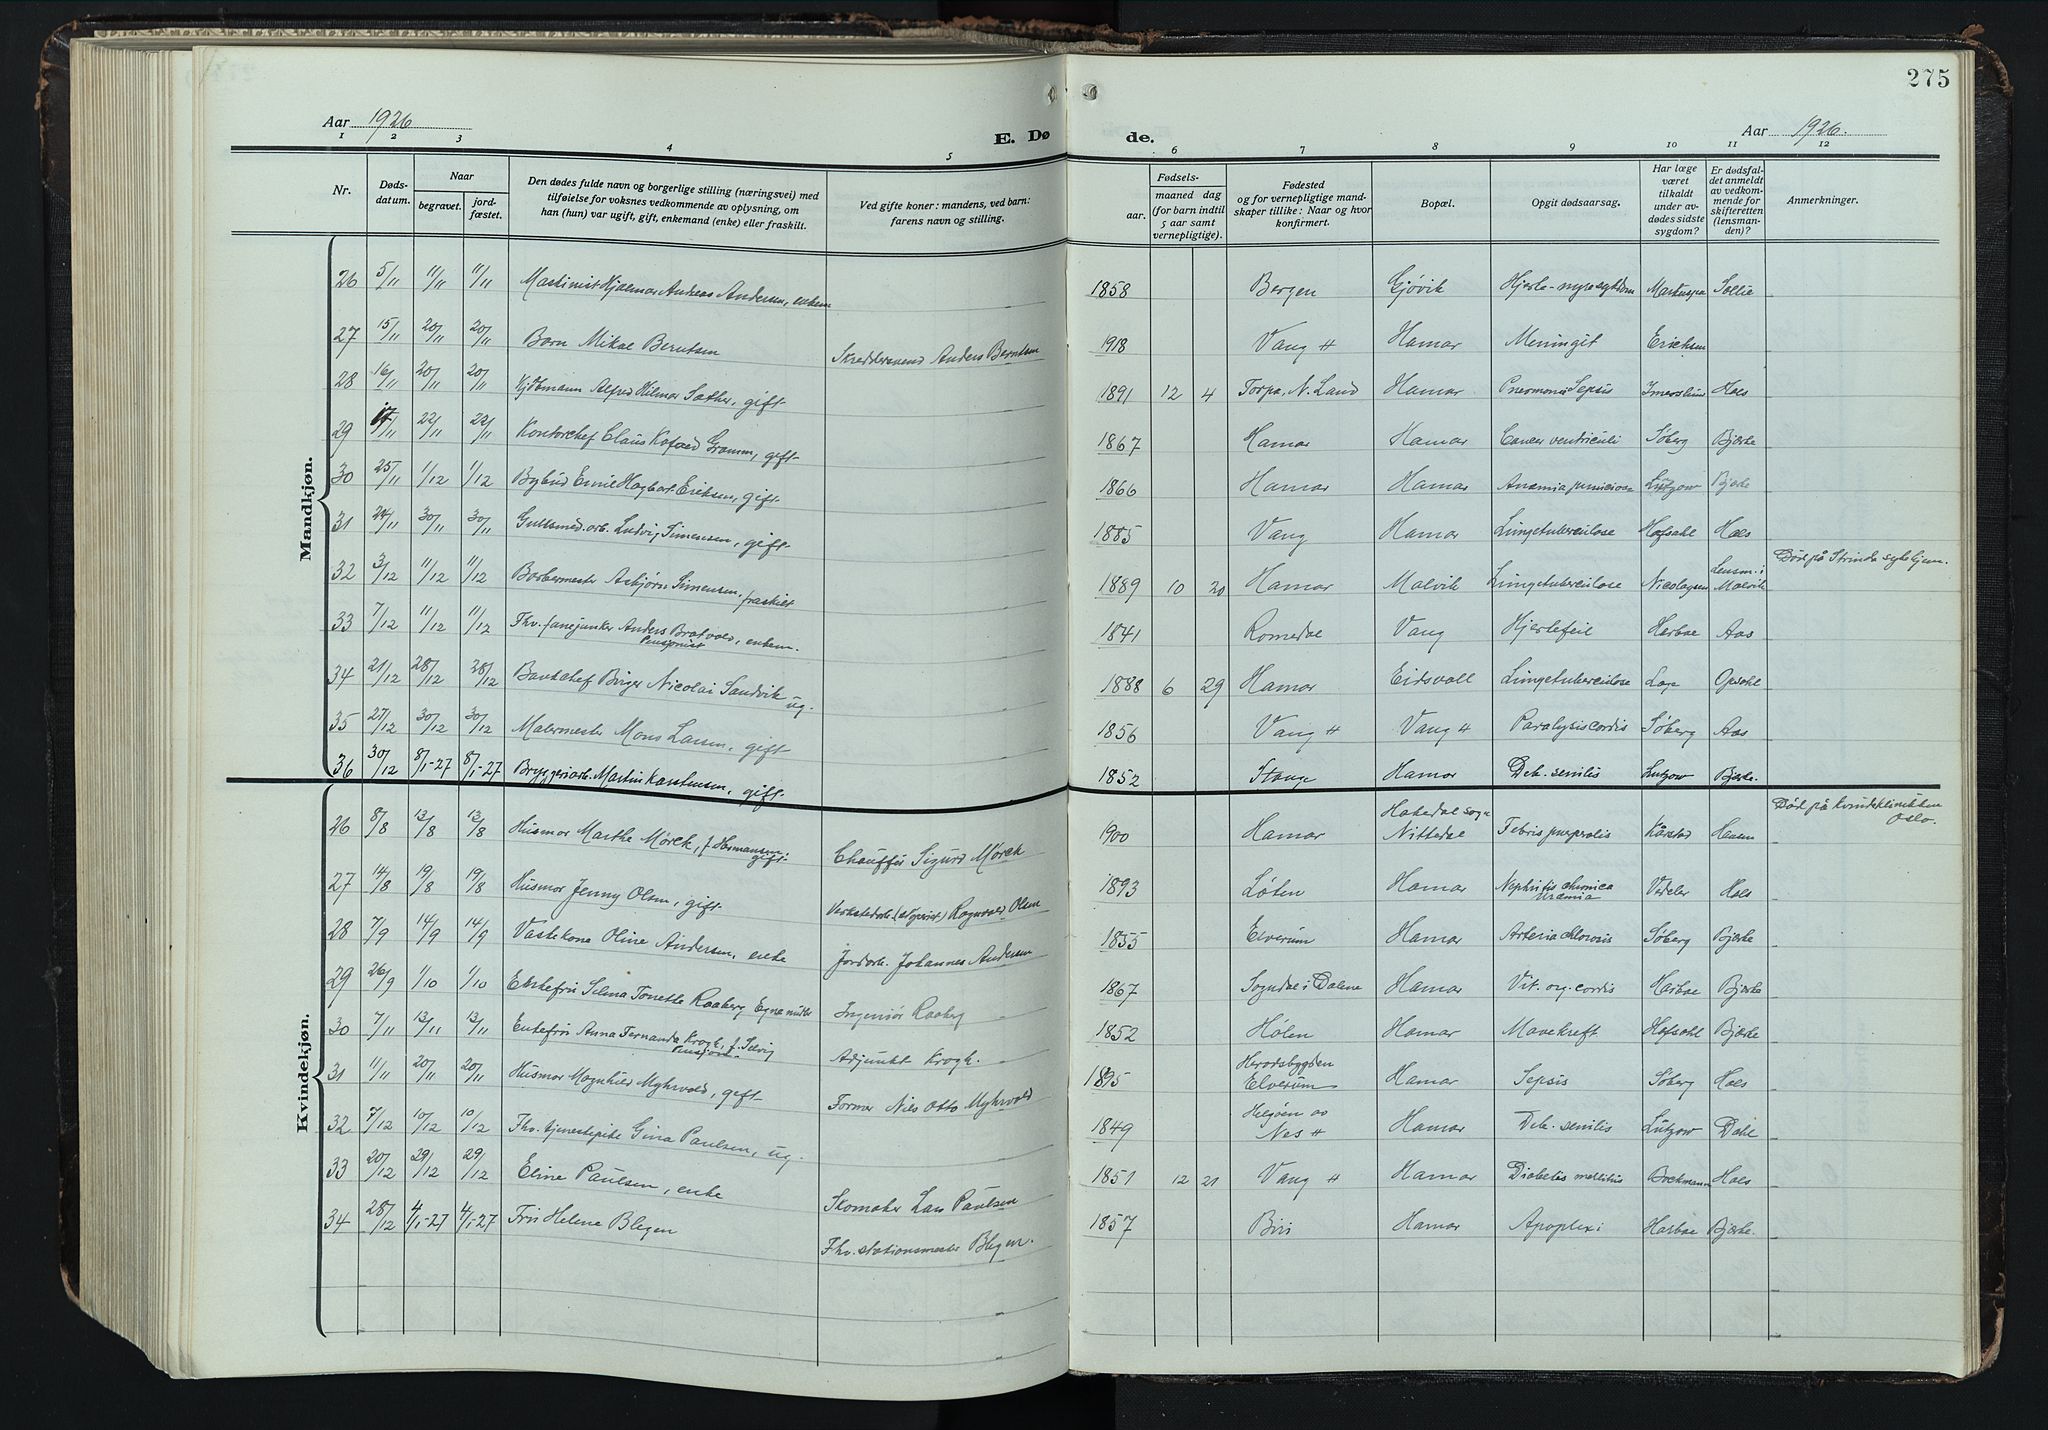 275
Aar 1926
E. Dø de.
Aar 1926.
1 2 3 4 5 6 7 8 9 10 11 12
Nr.
Døds-
datum.
Naar
begravet.
jord-
fæstet.
Den dødes fulde navn og borgerlige stilling (næringsvei) med
tilføielse for voksnes vedkommende av oplysning, om
han (hun) var ugift, gift, enkemand (enke) eller fraskilt.
Ved gifte koner: mandens, ved barn:
farens navn og stilling.
Fødsels-
aar.
maaned dag
(for barn indtil
5 aar samt
vernepligtige).
Fødested
og for vernepligtige mand-
skaper tillike: Naar og hvor
konfirmert.
Bopæl.
Opgit dødsaarsag.
Har læge
været
tilkaldt
under av-
dødes sidste
sygdom?
Er dødsfal-
det anmeldt
av vedkom-
mende for
skifteretten
(lensman-
den)?
Anmerkninger.
Mandkjøn.
26 5/11 11/11 11/11 Maskinist Hjalmar Andreas Andersen, enkem 1858 Bergen Gjøvik Hjerte-nyresygdom
27 15/11 20/11 20/11 Barn Mikal Berntsen Skreddersvend Anders Berntsen 1918 Vang H Hamar Meningit Eriksen
28 16/11 20/11 20/11 Kjøbmann Alfred Hilmar Sæther, gift 1891 12 4 Torpa, N. Land Hamar Pneumoni Sepsis Hoel
29 17/11 22/11 22/11 Kontorchef Claus Kofoed Gramm, gift 1867 Hamar Hamar Cancer ventriculi Søberg Bjerke
30 25/11 1/12 1/12 Bybud Emil Hagbart Eriksen, gift 1866 Hamar Hamar Anæmia perniciosa Lützow Bjerke
31 24/11 30/11 30/11 Gullsmed.arb. Ludvig Simensen, gift 1885 Vang Hamar Lungetuberculose Hofsahl Hoel
Død på Strinda sykehjem.
32 3/12 11/12 11/12 Barbermester Asbjørn Simensen, fraskilt 1889 10 20 Hamar Malvik Lungetuberculose Nicolaysen Lensm. i Malvik
33 7/12 11/12 11/12 Fhv. fanejunker Anders Bratvold, enkem. 1841 Romedal Vang Hjertefeil Harboe Aas
Pensjonist
34 21/12 28/12 28/12 Bankchef Birger Nicolai Sandvik ug. 1888 6 29 Hamar Eidsvoll Lungetuberculose Opsahl
35 27/12 30/12 30/12 Malermester Mons Larsen, gift 1856 Vang H Vang H Paralysis cordis Søberg Aas
36 30/12 8/1-27 8/1-27 Bryggeriarb. Martin Karstensen, gift 1852 Stange Hamar Deb. senilis Lutzow Bjerke.
Kvindekjøn.
Død på kvindeklinikken
Oslo.
26 8/8 13/8 13/8 Husmor Marthe Mørck, f. Hermansen, gift Chauffør Sigurd Mørck 1900 Hamar Hakedal sogn Nittedal Febris puerperalis Hansen
27 14/8 19/8 19/8 Husmor Jenny Olsen, gift Ragnvald Olsen 1893 Løten Hamar Nephritis chronica Uræmia Vedeler Hoel
28 7/9 14/9 14/9 Vaskekone Oline Andersen, enke Jordarb. Johannes Andersen 1855 Elverum Hamar Søberg Bjerke
29 26/9 1/10 1/10 Enkefru Selma Tonette Raaberg Egne midler Ingeniør Raaberg 1867 Sogndal i Dalene Hamar Vit. org. cordis Harboe Bjerke
30 7/11 13/11 13/11 Enkefru Anna Fernanda Krogh, f. Selvig Adjunkt Krogh. 1852 Hølen Hamar Mavekreft Hofsahl Bjerke
31 11/11 20/11 20/11 Husmor Magnhild Myhrvold, gift Former Nils Otto Myhrvold 1895 Herodsbygden Elverum Hamar Sepsis Søberg Hoel
32 7/12 10/12 10/12 Fhv. tjenestepike Gina Paulsen, ug. 1849 Helgøen av Nes H Hamar Deb. senilis Lützow Dahl
33 20/12 29/12 29/12 Eline Paulsen, enke Skomaker Lars Paulsen 1851 12 21 Vang H Hamar Diabetes mellitus Bockmann Hoel
34 28/12 4/1-27 4/1-27 Fru Helene Blegen Fhv. stationsmester Blegen. 1857 Biri Hamar Apoplexi Harboe Bjerke.